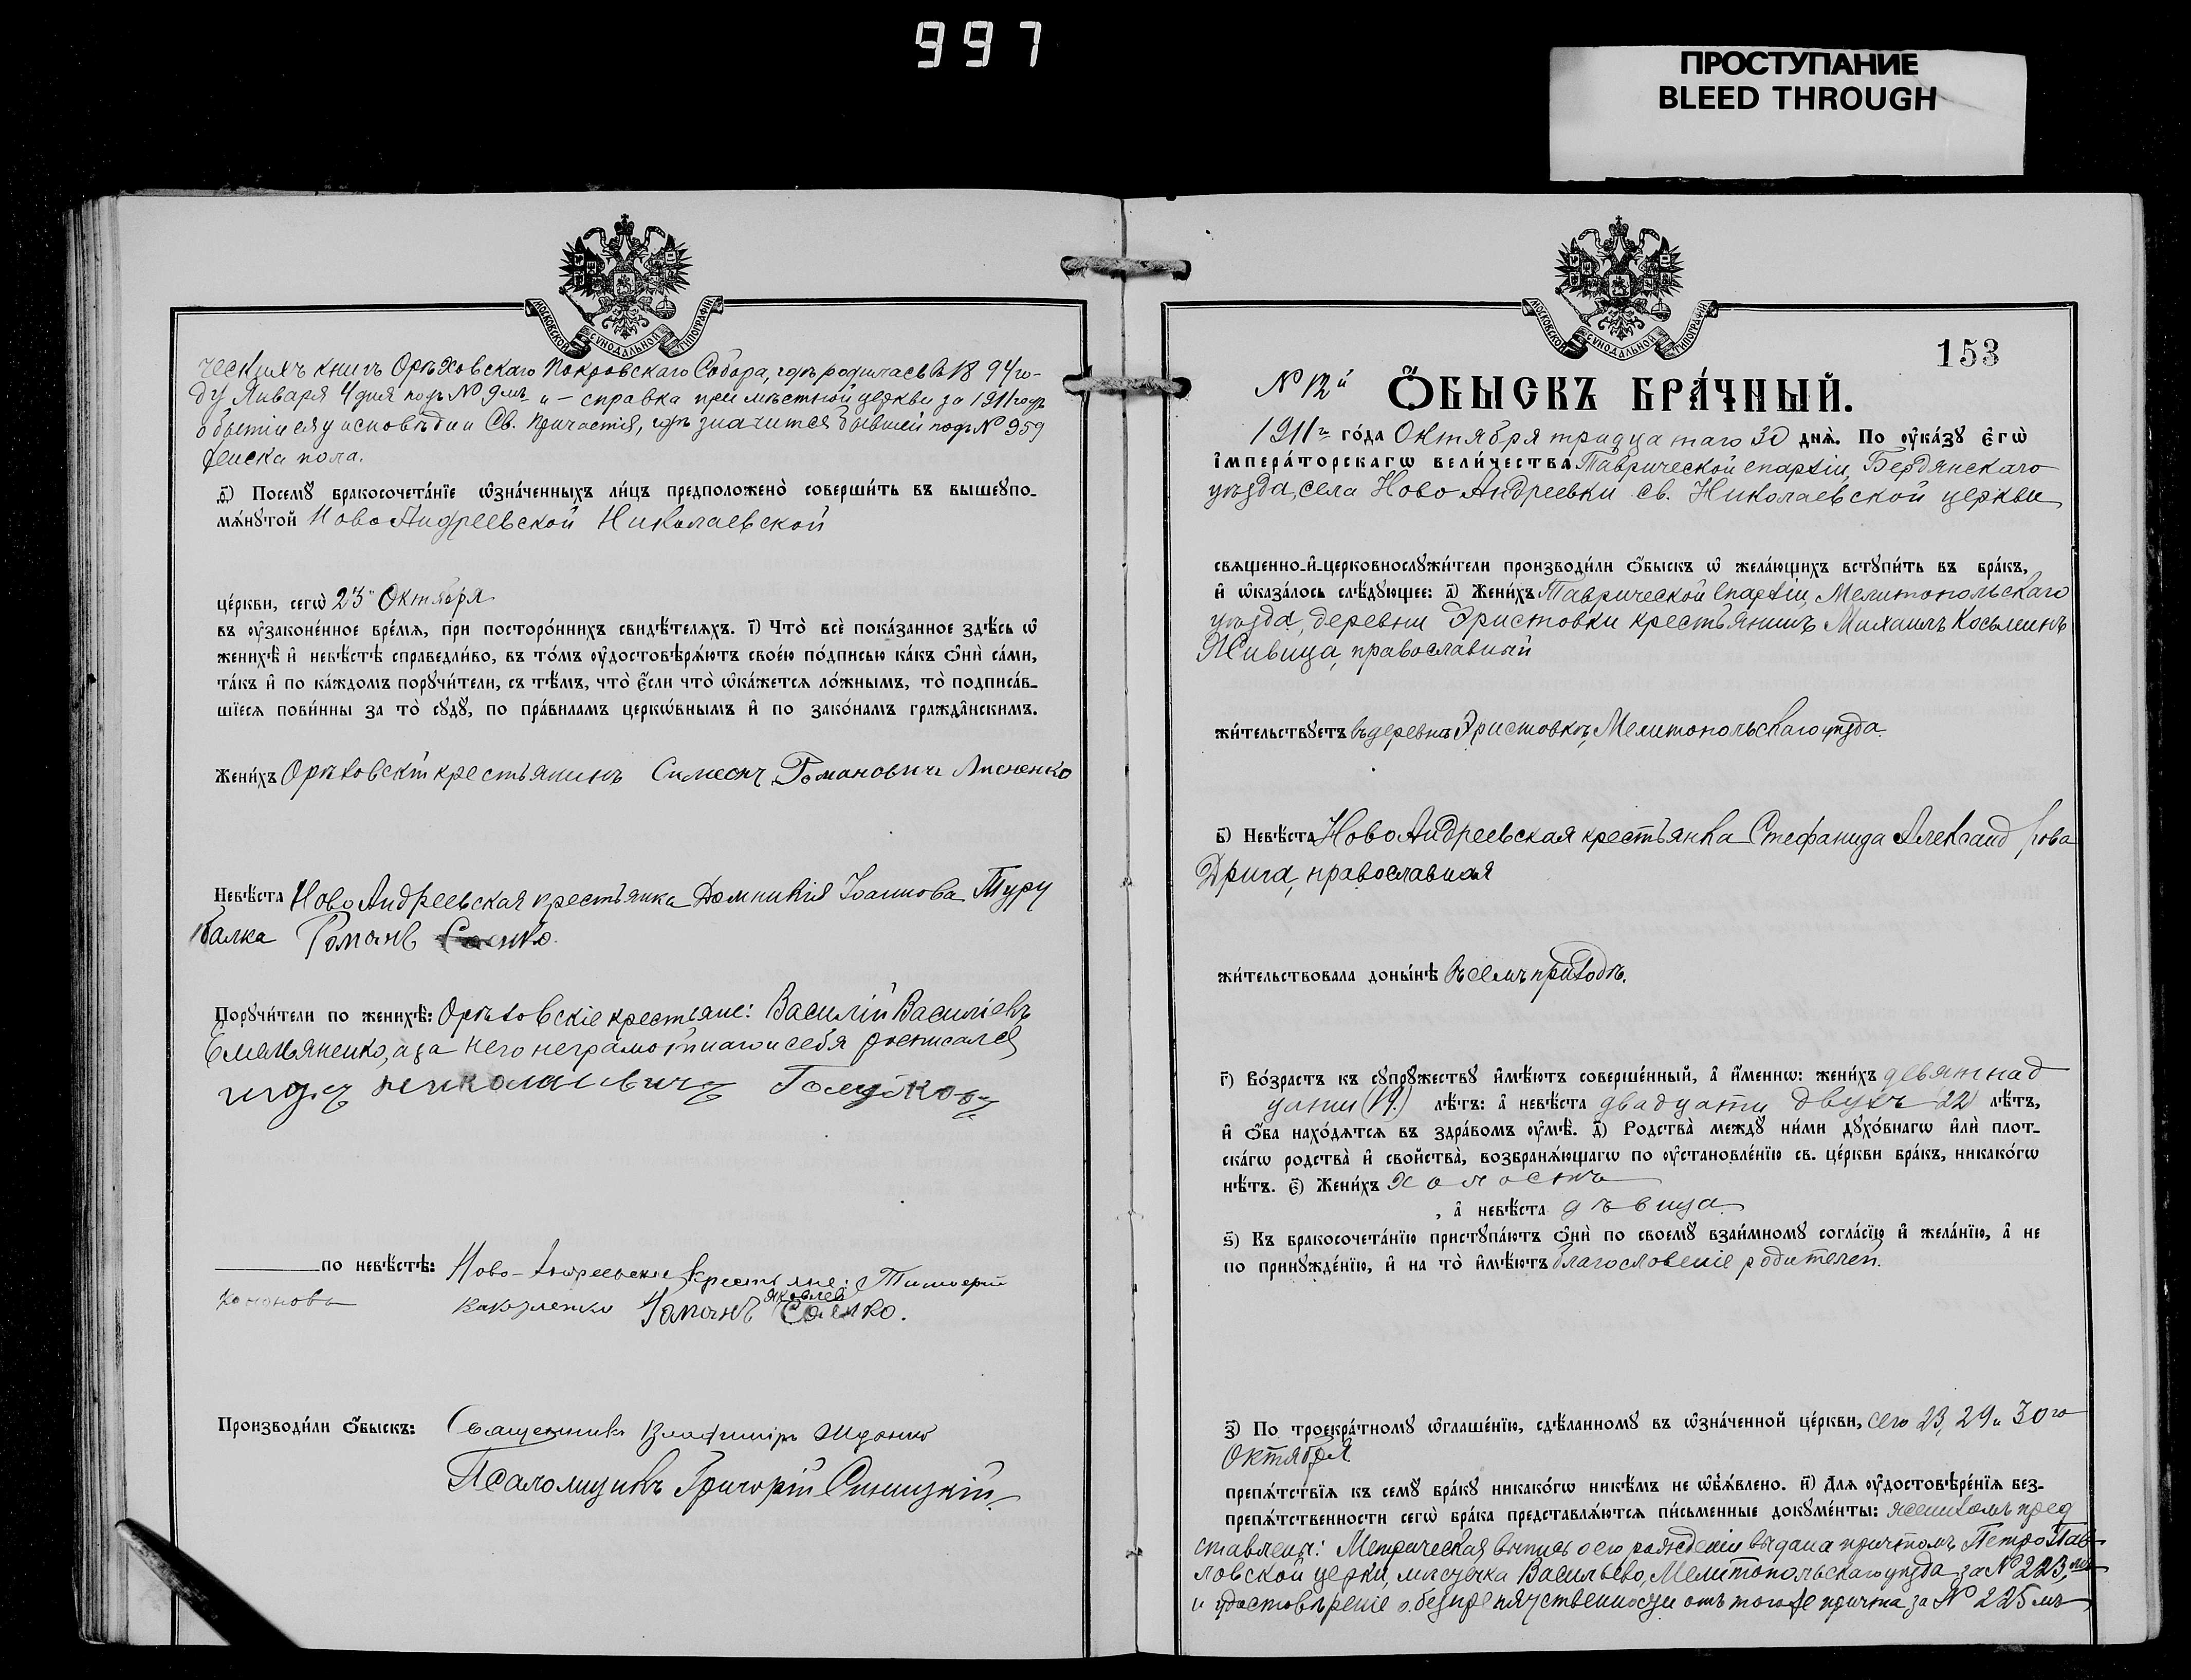 997
ПРОСТУПАНИЕ
BLEED THROUGH
МОСКОВСКОЙ СѴНОДАЛЬНОЙ ТИПОГРАФІИ
ческихъ книгъ Орѣховскаго Покровскаго Собора, гдѣ родилась въ 1894 го-
ду Января 4 дня подъ № 9мъ и – справка при мѣстной церкви за 1911 годъ
о бытіи ея у исповѣди и Св. Причастія, гдѣ значится бывшей подъ № 959
женска пола.
д҃) Посемꙋ̀ бракосочета́нїе ѡ҆зна́ченныхъ ли́цъ предположено̀ соверши́ть въ вышеꙋпо-
мѧ́нꙋтой Ново Андреевской Николаевской
це́ркви, сегѡ̀ 23" Октября
въ ᲂу҆зако́ненное вре́мѧ, при посторо́ннихъ свидѣ́телѧхъ. і҃) Что̀ всѐ пока́занное здѣ́сь ѡ҆
женихѣ̀ и҆ невѣ́стѣ справедли́во, въ то́мъ ᲂу҆достовѣрѧ́ютъ свое́ю по́дписью ка́къ ѻ҆нѝ са́ми,
та́къ и҆ по ка́ждомъ порꙋчи́тели, съ тѣ́мъ, что̀ є҆́сли что̀ ѡ҆ка́жетсѧ ло́жнымъ, то̀ подписа́в-
шїесѧ пови́нны за то̀ сꙋдꙋ̀, по пра́виламъ церкѡ́внымъ и҆ по зако́намъ гражда̑нскимъ.
Жени́хъ Орѣховскій крестьянинъ Симеонъ Романовичъ Лисненко
Невѣ́ста Ново Андреевская крестьянка Домникія Іоаннова Туру
балка Романъ Саенко.
Порꙋчи́тели по женихѣ̀: Орѣховскіе крестьяне: Василій Василіевъ
Емельяненко, а за него неграмотнаго и себя росписался
Николаевичъ Голубковъ
по невѣ́стѣ: Ново-Андреевскіе крестьяне: Тимоѳей
Кононовъ Романъ Яковлев Саенко.
Производи́ли ѻ҆́быскъ: Священникъ Владиміръ
Псаломщикъ Григорій Синицкій
МОСКОВСКОЙ СѴНОДАЛЬНОЙ ТИПОГРАФІИ
153
№ 12й Ѻ҆́БЫСКЪ БРА́ЧНЫЙ.
1911го го́да Октября тридцатаго 30 днѧ̀. По ᲂу҆ка́зꙋ Є҆гѡ̀
і҆мпера́торскагѡ вели́чества Таврической епархіи, Бердянскаго
уѣзда, села Ново Андреевки св. Николаевской церкви
свѧщенно-и҆-церковнослꙋжи́тели производи́ли ѻ҆́быскъ ѡ҆ жела́ющихъ встꙋпи́ть въ бра́къ,
и҆ ѡ҆каза́лось слѣ́дꙋющее: а҃) Жени́хъ Таврической Епархіи, Мелитопольскаго
уѣзда, деревни Эристовки крестьянинъ Михаилъ Косьминъ
Живица, православный
жи́тельствꙋетъ въ деревнѣ Эристовкѣ, Мелитопольскаго уѣзда.
в҃) Невѣ́ста Ново Андреевская крестьянка Стефанида Александрова
Дрига, православная
жи́тельствовала доны́нѣ въ семъ приходѣ.
г҃) Во́зрастъ къ сꙋпрꙋ́жествꙋ и҆мѣ́ютъ соверше́нный, а҆ и҆́меннѡ: жени́хъ девятнад
цати (19.) лѣ́тъ: а҆ невѣ́ста двадцати двухъ 22 лѣ́тъ,
и҆ ѻ҆́ба нахо́дѧтсѧ въ здра́вомъ ᲂу҆мѣ̀. д҃) Родства̀ междꙋ̀ ни́ми дꙋхо́внагѡ и҆лѝ плот-
ска́гѡ родства̀ и҆ свойства̀, возбранѧ́ющагѡ по ᲂу҆становле́нїю св. це́ркви бра́къ, никако́гѡ
нѣ́тъ. є҃) Жени́хъ холостъ
, а҆ невѣ́ста дѣвица
ѕ҃) Къ бракосочета́нїю пристꙋпа́ютъ ѻ҆нѝ по своемꙋ̀ взаи́мномꙋ согла́сїю и҆ жела́нїю, а҆ не
по принꙋжде́нїю, и҆ на то̀ и҆мѣ́ютъ благословеніе родителей.
з҃) По троекра́тномꙋ ѡ҆глаше́нїю, сдѣ́ланномꙋ въ ѡ҆зна́ченной це́ркви, сего 23, 29 и 30го
Октября
препѧ́тствїѧ къ семꙋ̀ бра́кꙋ никако́гѡ никѣ́мъ не ѡ҆б̾ѧ́влено. и҃) Для ᲂу҆достовѣре́нїѧ без-
препѧ́тственности сегѡ̀ бра́ка представлѧ́ютсѧ пи́сьменные докꙋме́нты: женихомъ пред
ставлены: Метрическая выпись о его рожденіи выдана причтомъ Петро Пав
ловской церкви, мѣстечка Васильево, Мелитопольскаго уѣзда за № 223мъ
и удостовѣреніе о безпрепятственности отъ того же причта за № 225мъ